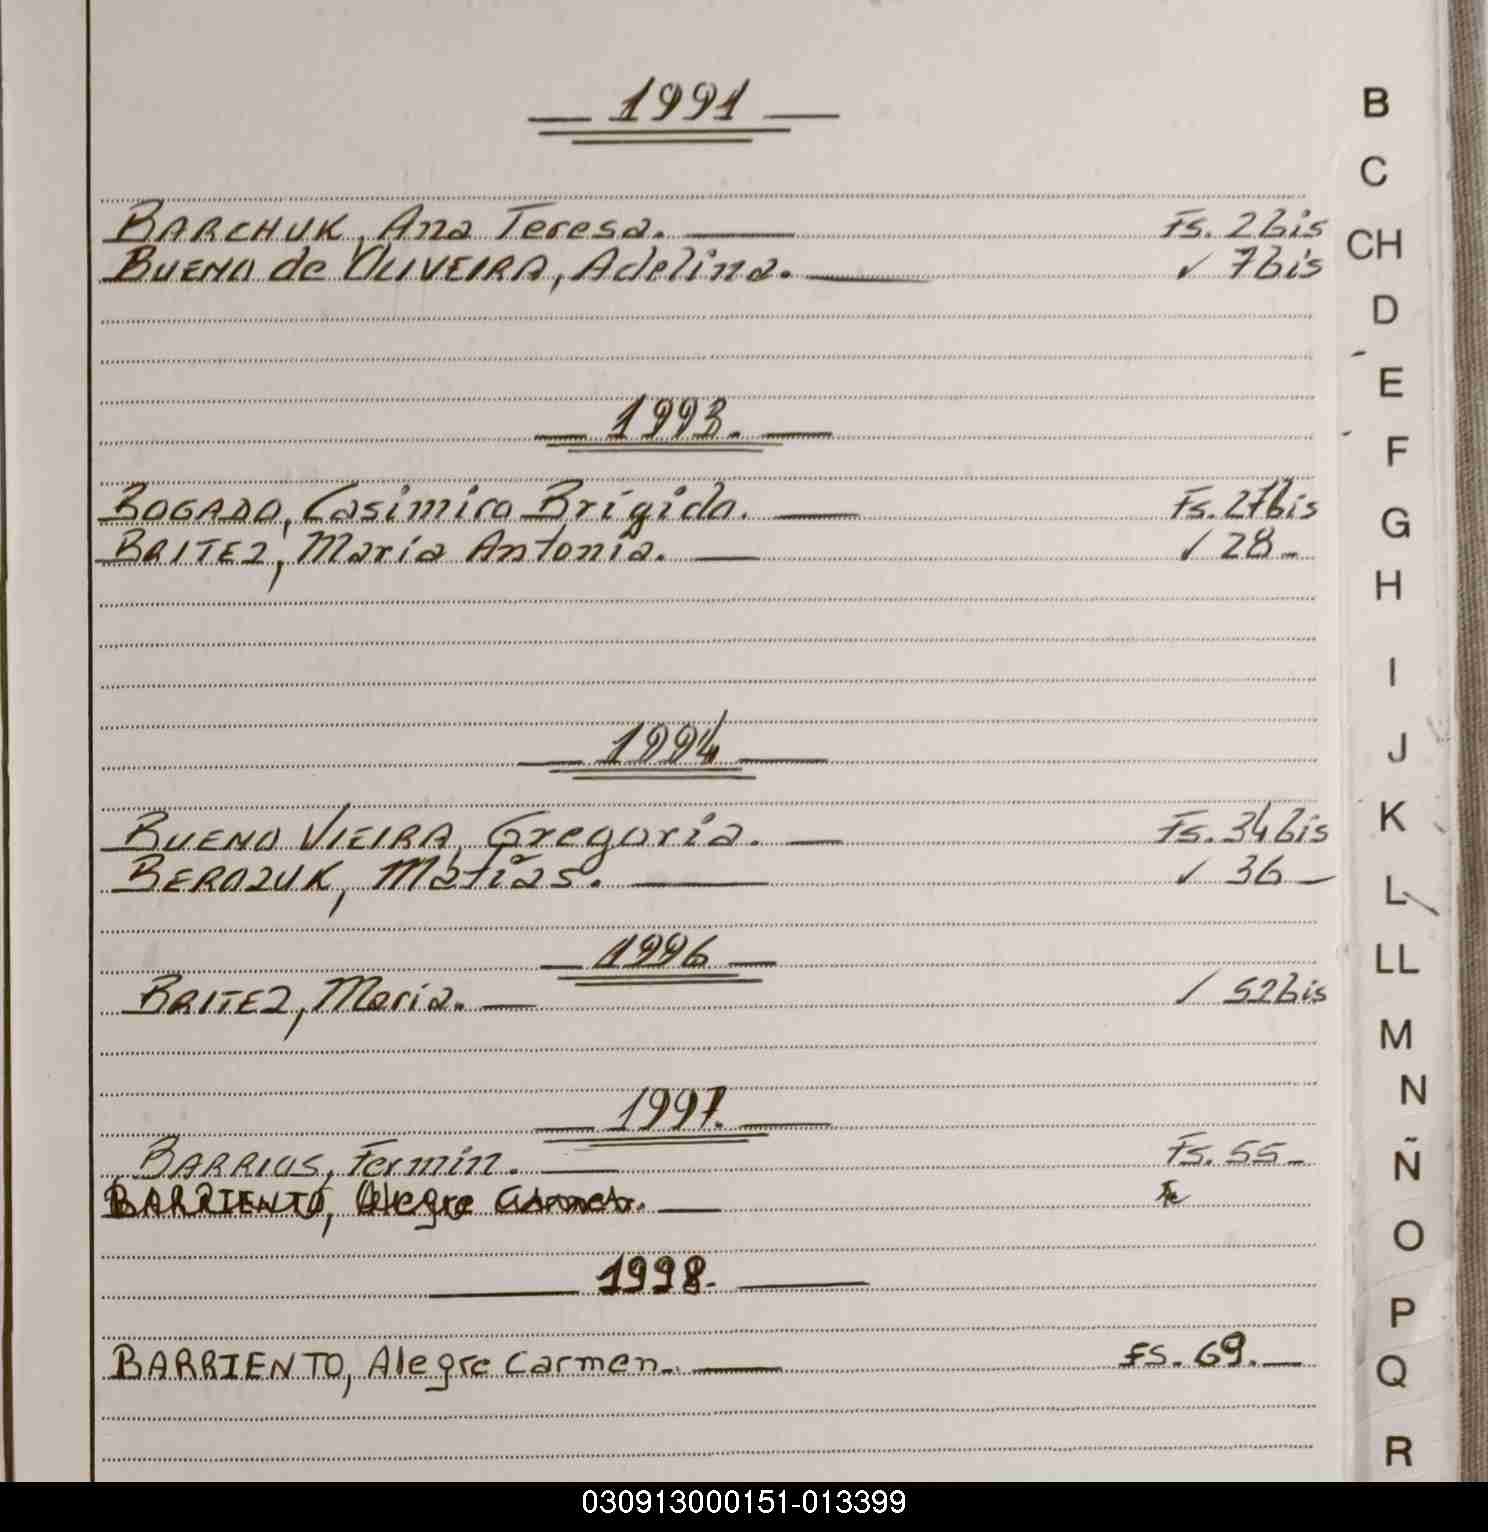 1991
BARCHUK, Ana Teresa. Fs. 2bis
BUENO de OLIVEIRA, Adelina. ✓ 7bis
1993.
BOGADO, Casimira Brígida. Fs. 27bis
BRITEZ, María Antonia. ✓ 28-
1994
BUENO VIEIRA, Gregoria. Fs. 34bis
BERAZUK, Matías. ✓ 36-
1996
BRITEZ, María. / 52bis
1997.
BARRIOS, Fermín. Fs. 55-
BARRIENTO, Alegre
1998.
BARRIENTO, Alegre Carmen. FS. 69.
B
C
CH
D
E
F
G
H
I
J
K
L
LL
M
N
Ñ
O
P
Q
R
030913000151-013399